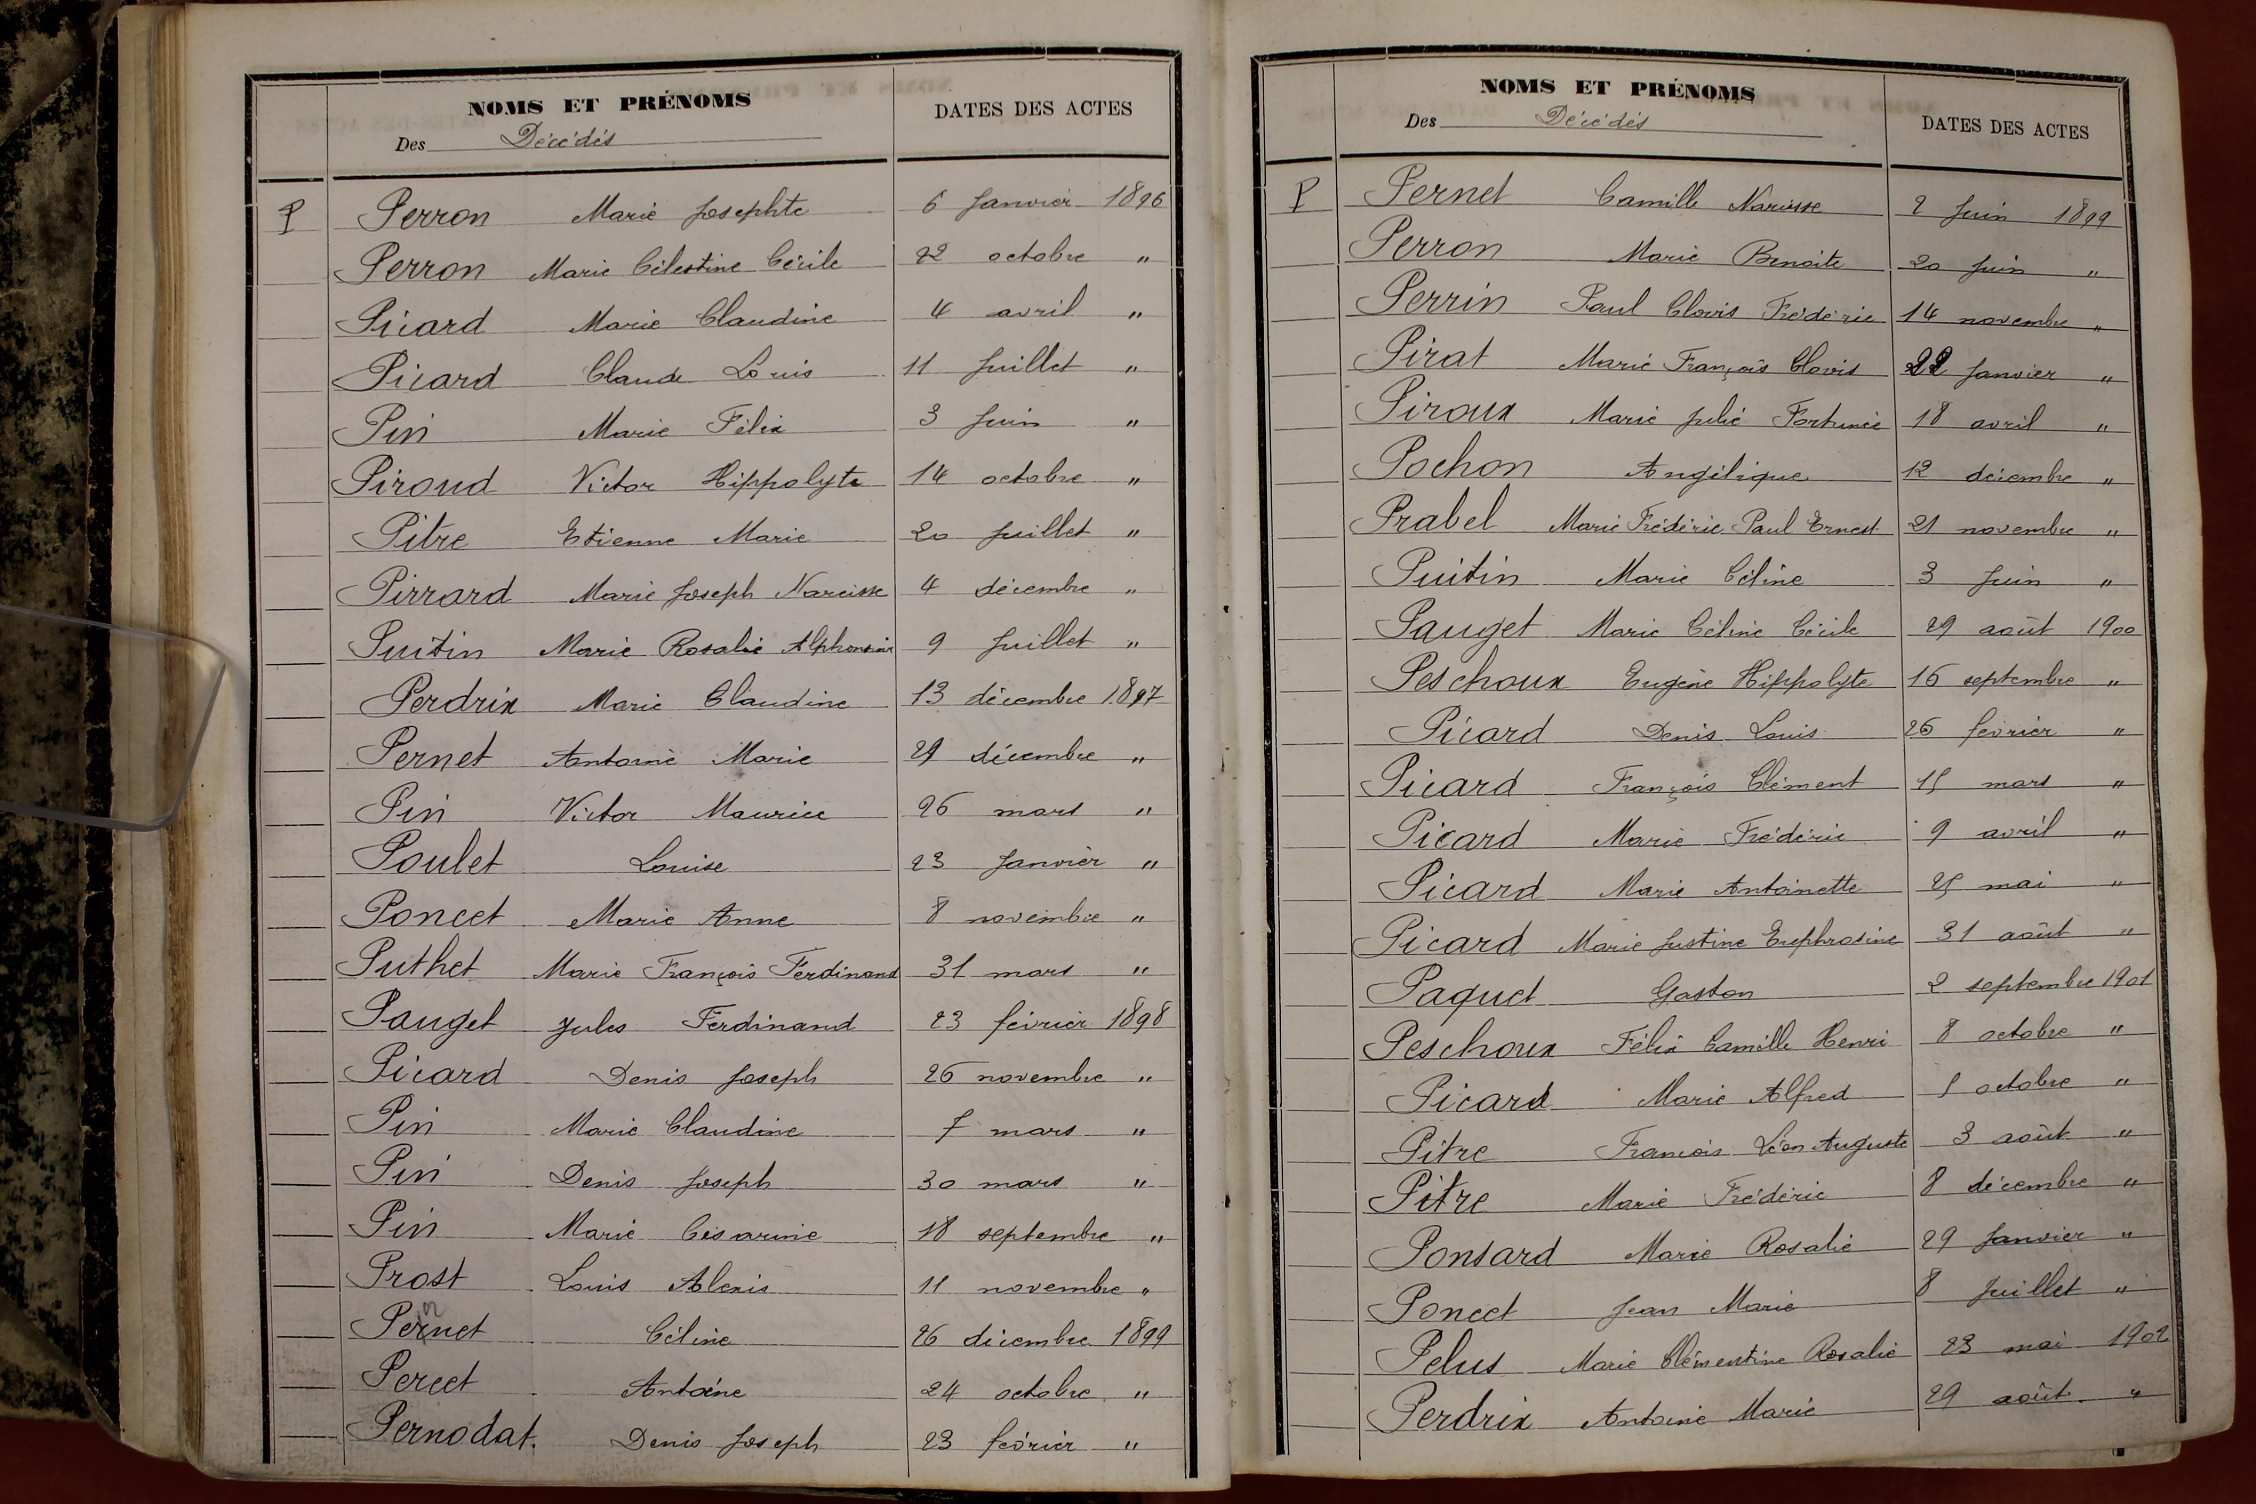 NOMS ET PRÉNOMS
Des Décédés
DATES DES ACTES
P Perron Marie Josephte 6 Janvier 1896
Perron Marie Célestine Cécile 22 octobre "
Picard Marie Claudine 4 avril "
Picard Claude Louis 11 Juillet "
Pin Marie Félix 3 Juin "
Piroud Victor Hippolyte 14 octobre "
Pitre Etienne Marie 20 Juillet "
Pirrard Marie Joseph Narcisse 4 décembre "
Puitin Marie Rosalie Alphonsine 9 Juillet "
Perdrix Marie Claudine 13 décembre 1897
Pernet Antoine Marie 29 décembre "
Pin Victor Maurice 26 mars "
Poulet Louise 23 Janvier "
Poncet Marie Anne 8 novembre "
Puthet Marie François Ferdinand 31 mars "
Pauget Jules Ferdinand 23 février 1898
Picard Denis Joseph 26 novembre "
Pin Marie Claudine 7 mars "
Pin Denis Joseph 30 mars "
Pin Marie Césarine 18 septembre "
Prost Louis Alexis 11 novembre "
Pernet Céline 26 décembre 1899
Percet Antoine 24 octobre "
Pernodat. Denis Joseph 23 février "
NOMS ET PRÉNOMS
Des Décédés
DATES DES ACTES
P Pernet Camille Narcisse 2 Juin 1899
Perron Marie Benoite 20 Juin "
Perrin Paul Clovis Frédéric 14 novembre "
Pirat Marie François Clovis 22 Janvier "
Piroux Marie Julie Fortunée 18 avril "
Pochon Angélique 12 décembre "
Prabel Marie Frédéric Paul Ernest 21 novembre "
Puitin Marie Céline 3 Juin "
Pauget Marie Céline Cécile 29 août 1900
Peschoux Eugène Hippolyte 16 septembre "
Picard Denis Louis 26 février "
Picard François Clément 15 mars "
Picard Marie Frédéric 9 avril "
Picard Marie Antoinette 25 mai "
Picard Marie Justine Euphrosine 31 août "
Paquet Gaston 2 septembre 1901
Peschoux Félix Camille Henri 8 octobre "
Picard Marie Alfred 5 octobre "
Pitre François Léon Auguste 3 août "
Pitre Marie Frédéric 8 décembre "
Ponsard Marie Rosalie 29 Janvier "
Poncet Jean Marie 8 Juillet "
Pelus Marie Clémentine Rosalie 23 mai 1902
Perdrix Antoine Marie 29 août "